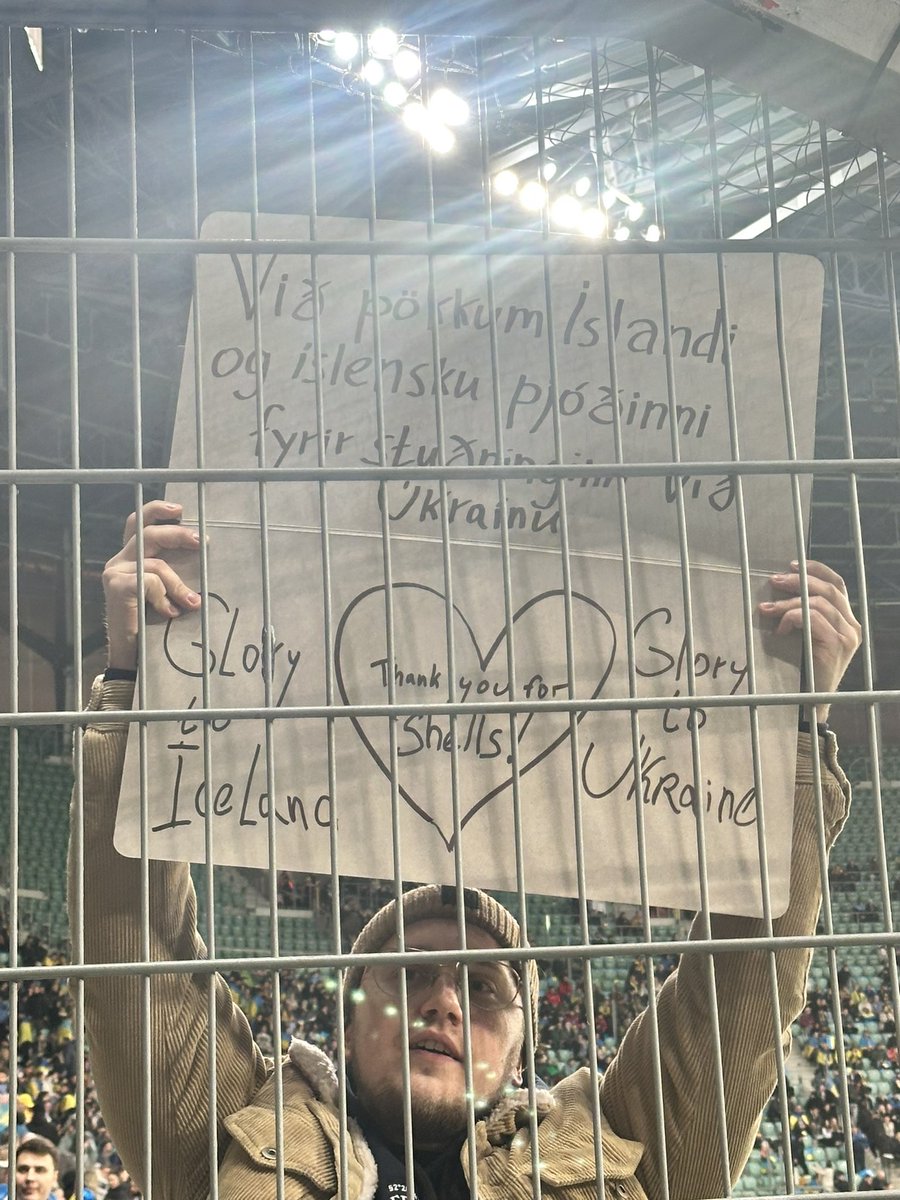 Við pökkum Íslandi
og íslensku pjóðinni
fyrir stuðninginn við
Úkrainu
Glory
to
Iceland
Thank you for
Shells!
Glory
to
Ukraine